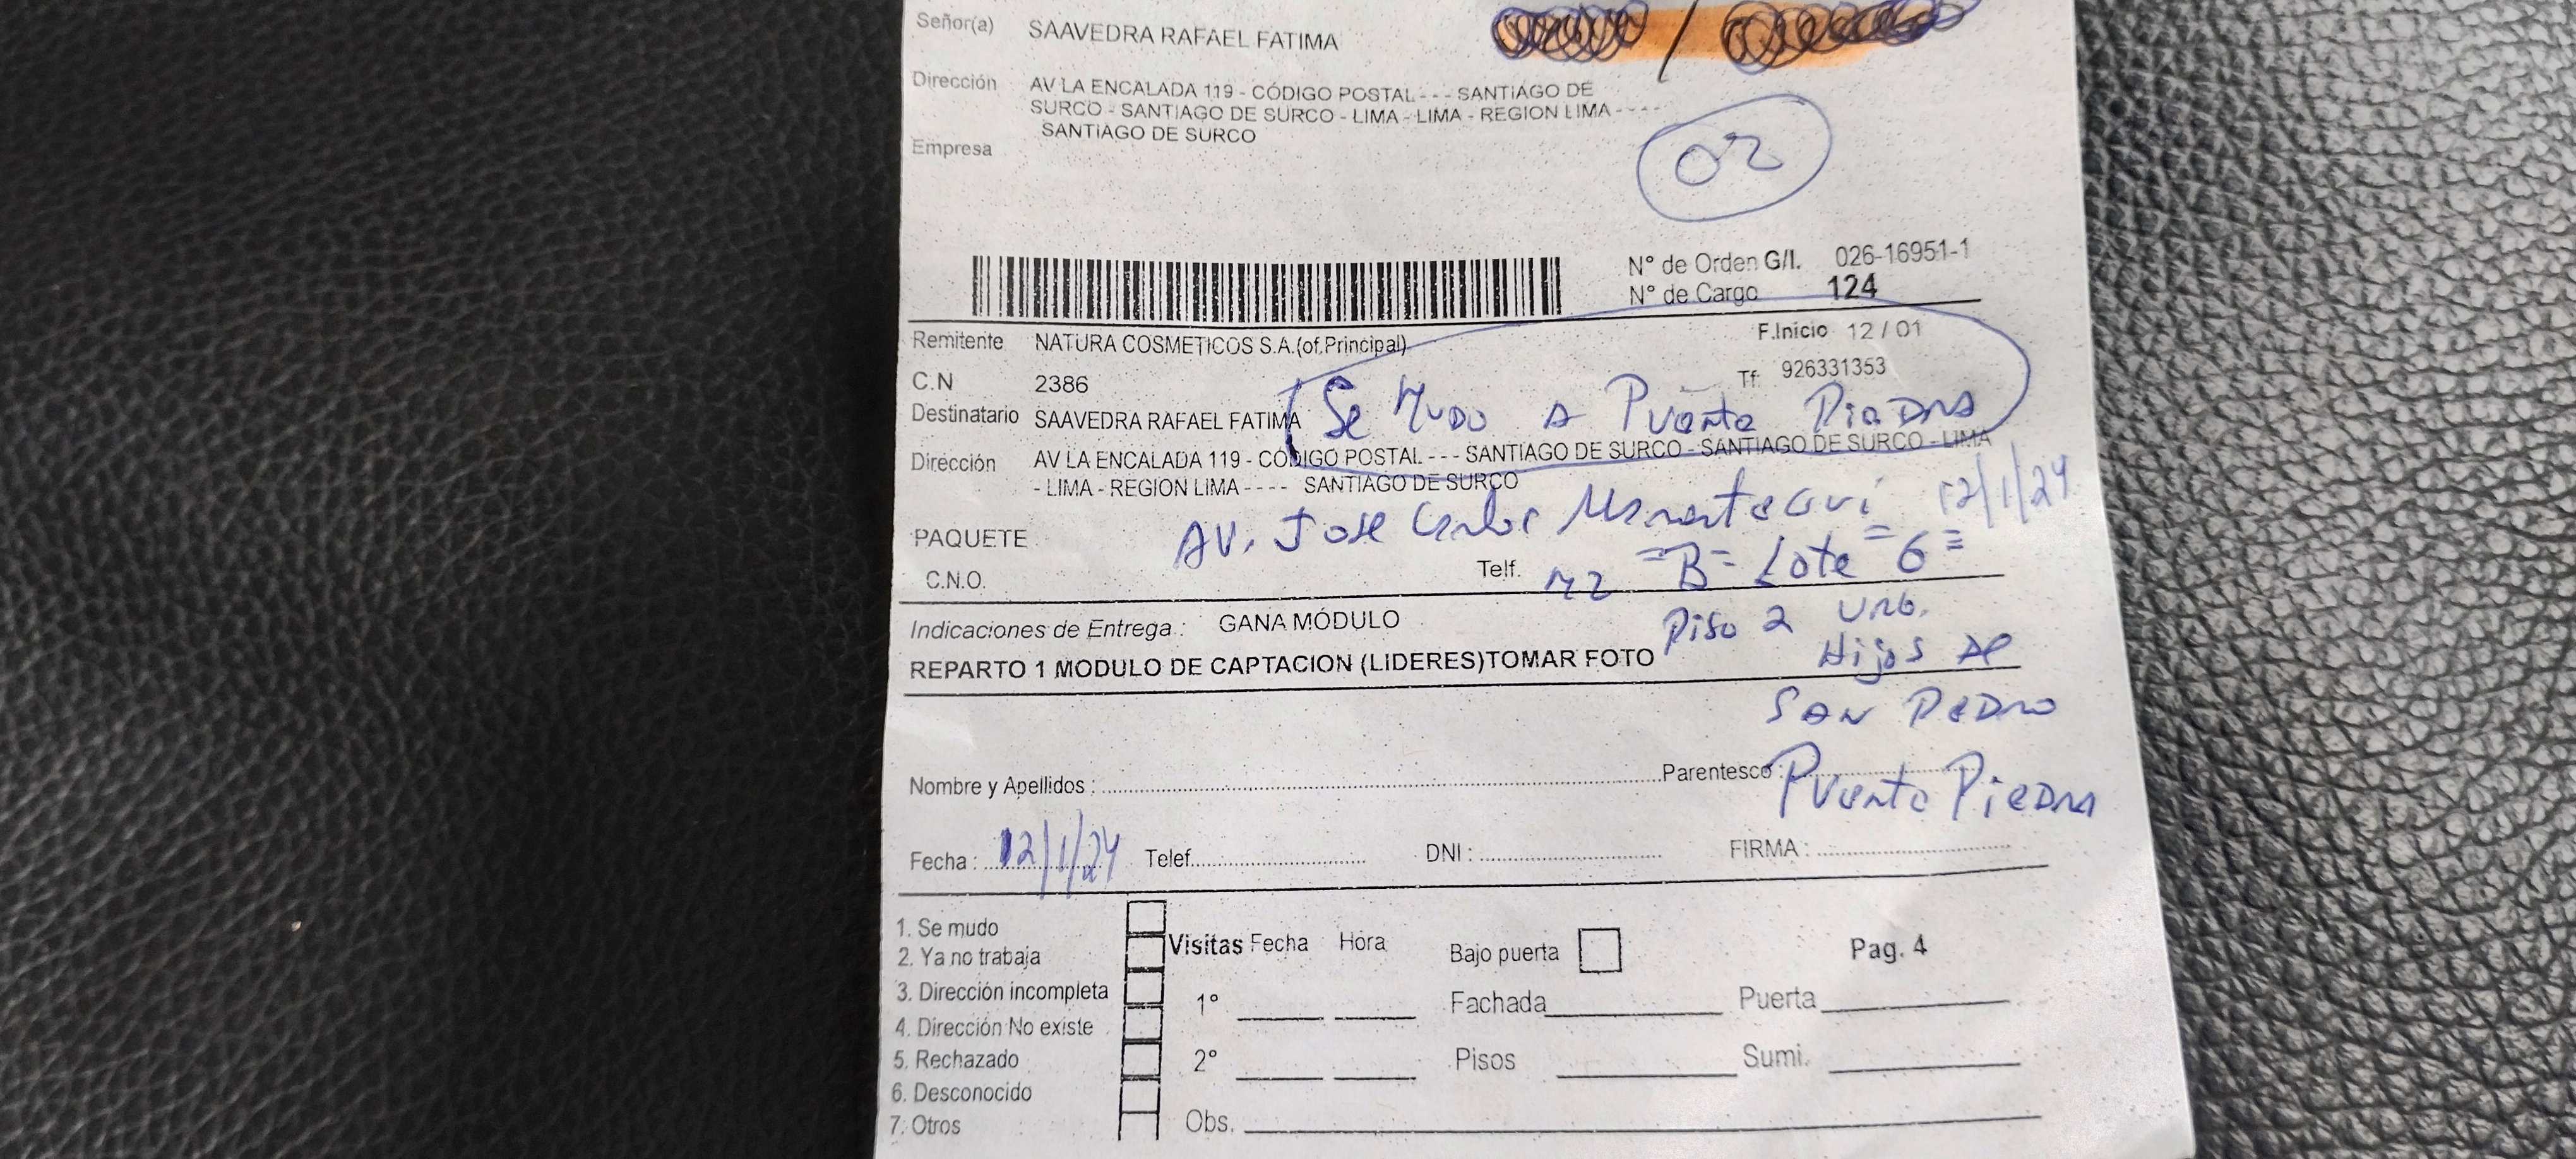 Señor(a) SAAVEDRA RAFAEL FATIMA
Dirección AV LA ENCALADA 119 - CÓDIGO POSTAL - - - SANTIAGO DE
SURCO - SANTIAGO DE SURCO - LIMA - LIMA - REGION LIMA - - - -
SANTIAGO DE SURCO
Empresa
02
N° de Orden G/I. 026-16951-1
N° de Cargo 124
Remitente NATURA COSMETICOS S.A.(of.Principal) F.Inicio 12 / 01
C.N 2386 Tf: 926331353
Destinatario SAAVEDRA RAFAEL FATIMA Se Mudo A Puente Piedra
Dirección AV LA ENCALADA 119 - CÓDIGO POSTAL - - - SANTIAGO DE SURCO - SANTIAGO DE SURCO - LIMA
- LIMA - REGION LIMA - - - - SANTIAGO DE SURCO
AV. Jose Carlos 12/1/24
PAQUETE
C.N.O. Telf. Mz "B" Lote "6"
Indicaciones de Entrega : GANA MÓDULO Piso 2 Urb.
REPARTO 1 MODULO DE CAPTACION (LIDERES)TOMAR FOTO Hijos de
San Pedro
Nombre y Apellidos : Parentesco : Puente Piedra
Fecha : 12/1/24 Telef. DNI : FIRMA :
1. Se mudo
2. Ya no trabaja Visitas Fecha Hora Bajo puerta Pag. 4
3. Dirección incompleta 1° Fachada Puerta
4. Dirección No existe
5. Rechazado 2° Pisos Sumi.
6. Desconocido
7. Otros Obs.